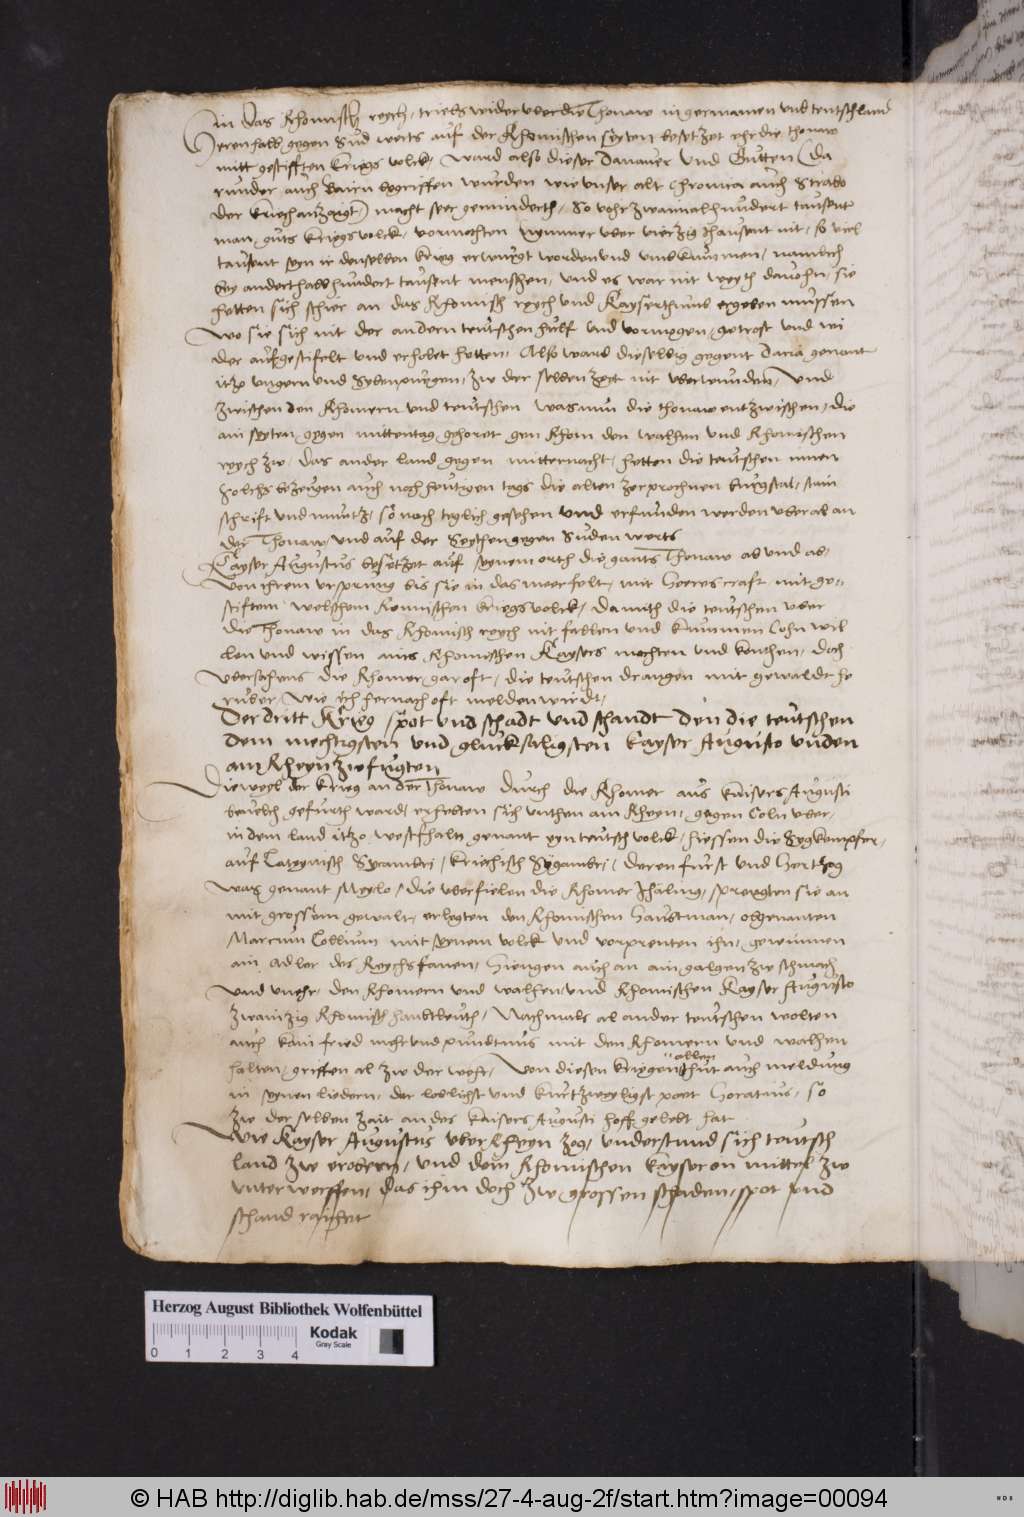 in das Rhomisch reych, triebs wider uber die Thonaw in germanien und teutschland
Herenhalb gegen Sud werts auf der Rhomischen seyten besetzet ehr die thonaw
mitt gestifften kriegs volck, Ward also dieser Danauer und Gutten (da
runder auch Bairn begriffen wurden wie unser alt Chronica auch Strabo
der kriech anzaigt) macht seer gemindertt, So vohr zwaimalhundert tausent
man, guts kriegsvolck, vermochten nymmer uber vierzig thausent nit, so viel
tausent seyn in denselben krieg erwurgt worden und umbkummen, namlich
bey anderthalbhundert tausent menschen, und es war nit weyth davohn, sie
hetten sich schier an das Rhomisch reych und Kayserthumb ergeben mussen
wo sie sich nit der andern teutschen hulf und vormugen, getrost und wi
der aufgestifelt und erhebet hetten, Also ward dieselbig gegent Dacia genant
itzo ungern und Sybenpurgen, zw der selben zeyt nit uberwunden, Und
zwischen den Rhomern und teutschen was nun die thonaw entzwischen, die
ain seyten gegen mittentag gehoret gen Rhom den walhen und Rhomischen
reych zw, das ander land gegen mitternacht, hetten die teutschen innen
Solchs bezeugen auch noch heutigen tags die alten zerprochnen burgstal, stain
schrift und muntz, so noch teglich gesehen und erfunden werden uberal an
der Thonaw und auf der Seythen gegen Suden werts
Kayser Augustus besetzet auf seynem orth die gants Thonaw ab und ab,
Von ihrem ursprung bis sie in das meer felt, mit Heeres craft mit ge=
stiftem welschem Romischen kriegsvolck, damith die teutschen uber
die Thonaw in das Rhomisch reych nit fallen und kummen Cohn wil
len und wissen ains Rhomischen Kaysers mochten und konthen, doch
ubersahens die Rhomer gar oft, die teutschen drangen mit gewaldt he
ruber, wie ich hernach oft melden wirdt,
Der dritt Krieg spot und schadt und schandt den die teutschen
dem mechtigsten und gluckseligsten kayser Augusto unden
am Rheyn zwfugten
Dieweyl der krieg an der Thonaw durch die Rhomer aus kaisers Augusti
bevelch gefurth ward, erhebten sich unthen am Rheyn, gegen Coln uber,
in dem land itzo westfhaln genant eyn teutsch volck, hiessen die Sygkempfer,
auf Lateynisch Sycambri, kriechisch Sygambri, deren furst und Hertzog
was genant Meylo, die uberfielen die Rhomer Ihaling, sprengten sie an
mit grossem gewalt, erlegten den Rhomischen Haubtman, obgenanten
Marcum Lollium mit seynem volck und vorprenten ihn, gewunnen
ain adler des Reychsfanen, Hiengen auch an ain galgen zw schmach
und unehr, den Rhomern und walhen, und Rhomischen Kayser Augusto
zwainzig Rhomisch haubtleuth, Nachmals al ander teutschen wolten
auch kain fried nicht und pundtnus mit den Rhomern und walhen
halten, griffen al zw der wehr, Von diesen kriegen allen thut auch meldung
in seynen liedern, der loblichst und kurtzweyligst poet Horatius, so
zw der selben zait an des kaisers Augusti hoff gelebt hat
Wie Kayser Augustus uber Rheyn zog, understund sich teutsch
land zw erobern, und dem Rhomischen kayser on mittel zw
unterwerffen, das ihm doch zw grossen schaden, spot und
schand raichett
Herzog August Bibliothek Wolfenbüttel
Kodak
Gray Scale
0 1 2 3 4
© HAB http://diglib.hab.de/mss/27-4-aug-2f/start.htm?image=00094